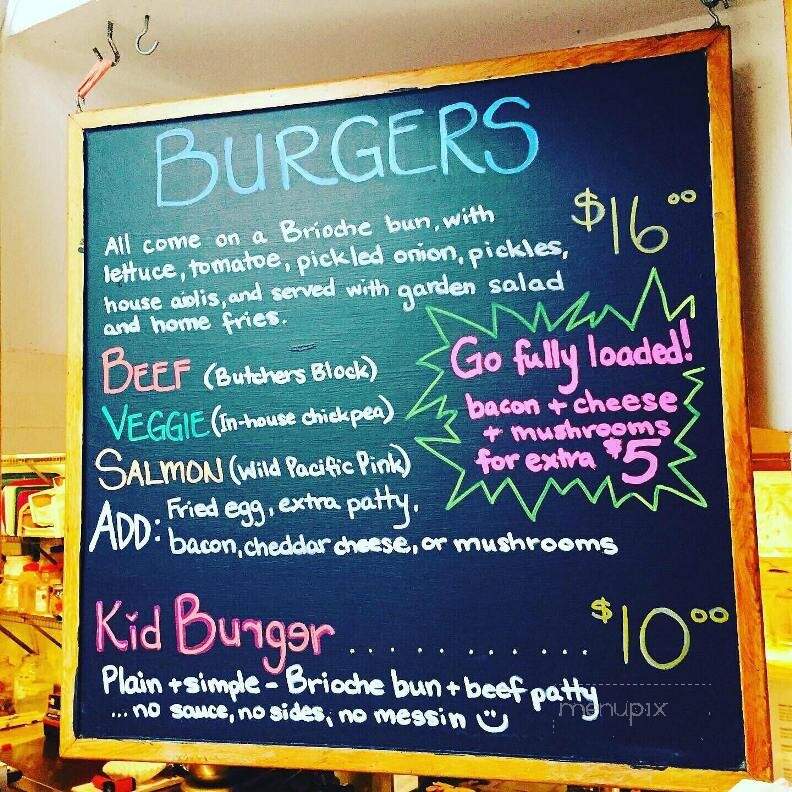 BURGERS
$16.00
All come on a Brioche bun, with
lettuce, tomatoe, pickled onion, pickles,
house aiolis, and served with garden salad
and home fries.
BEEF (Butchers Block)
VEGGIE (In-house chickpea)
SALMON (Wild Pacific Pink)
ADD: Fried egg, extra patty,
bacon, cheddar cheese, or mushrooms
Go fully loaded!
bacon + cheese
+ mushrooms
for extra $5
Kid Burger ............ $10.00
Plain + simple - Brioche bun + beef patty
... no sauce, no sides, no messin
menupix